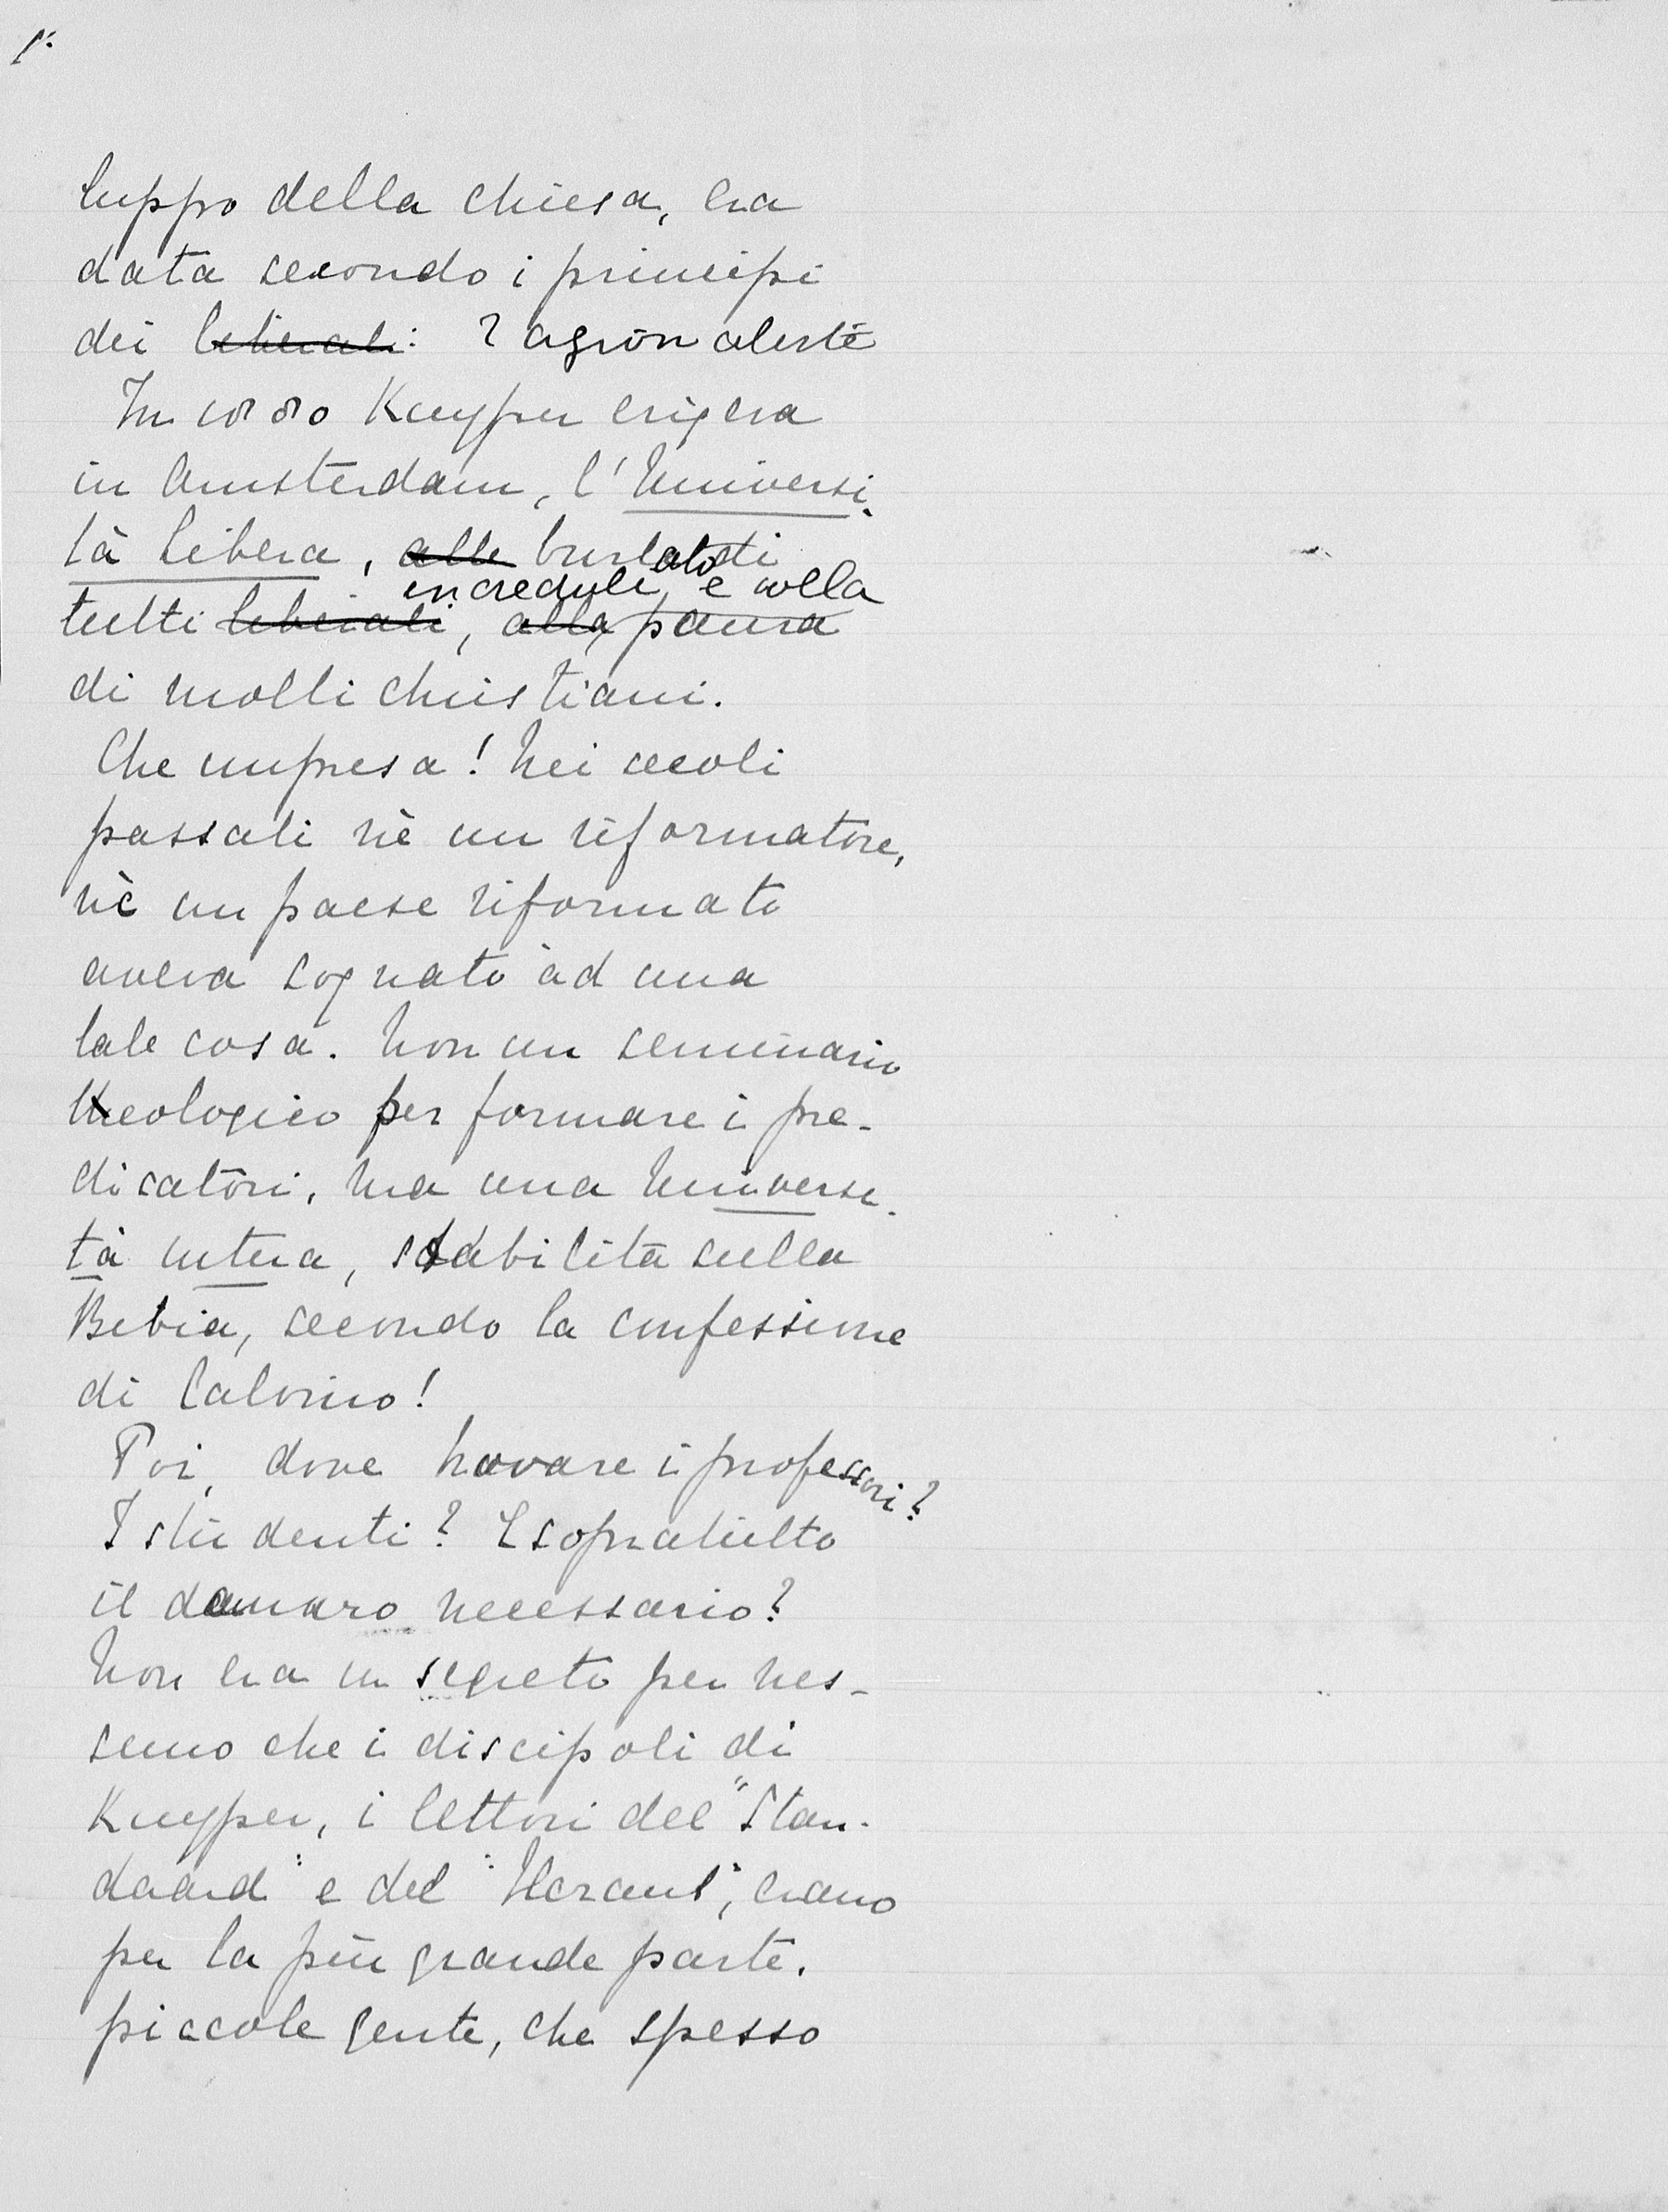 luppo della chiesa, era
data secondo i principi
dei ~~liberali~~: ragionaleste
In 1880 Kuyper erigeva
in Amsterdam, l'Universi-
tà Libera, ~~alle~~ burlato di
increduli e colla
tutti ~~liberali~~, ~~alla~~ paura
di molti christiani.
Che impresa! Nei secoli
passati nè un riformatore,
nè un paese riformato
aveva sognato ad una
tale cosa. Non un seminario
teologico per formare i pre-
dicatori, ma una Universi-
tà intera, stabilita sulla
Bibia, secondo la confessione
di Calvino!
Poi, dove trovare i professori?
I studenti? E sopratutto
il danaro necessario?
Non era un segreto per nes-
suno che i discipoli di
Kuyper, i lettori del "Stan-
daard" e del "Heraut", erano
per la più grande parte,
piccole gente, che spesso